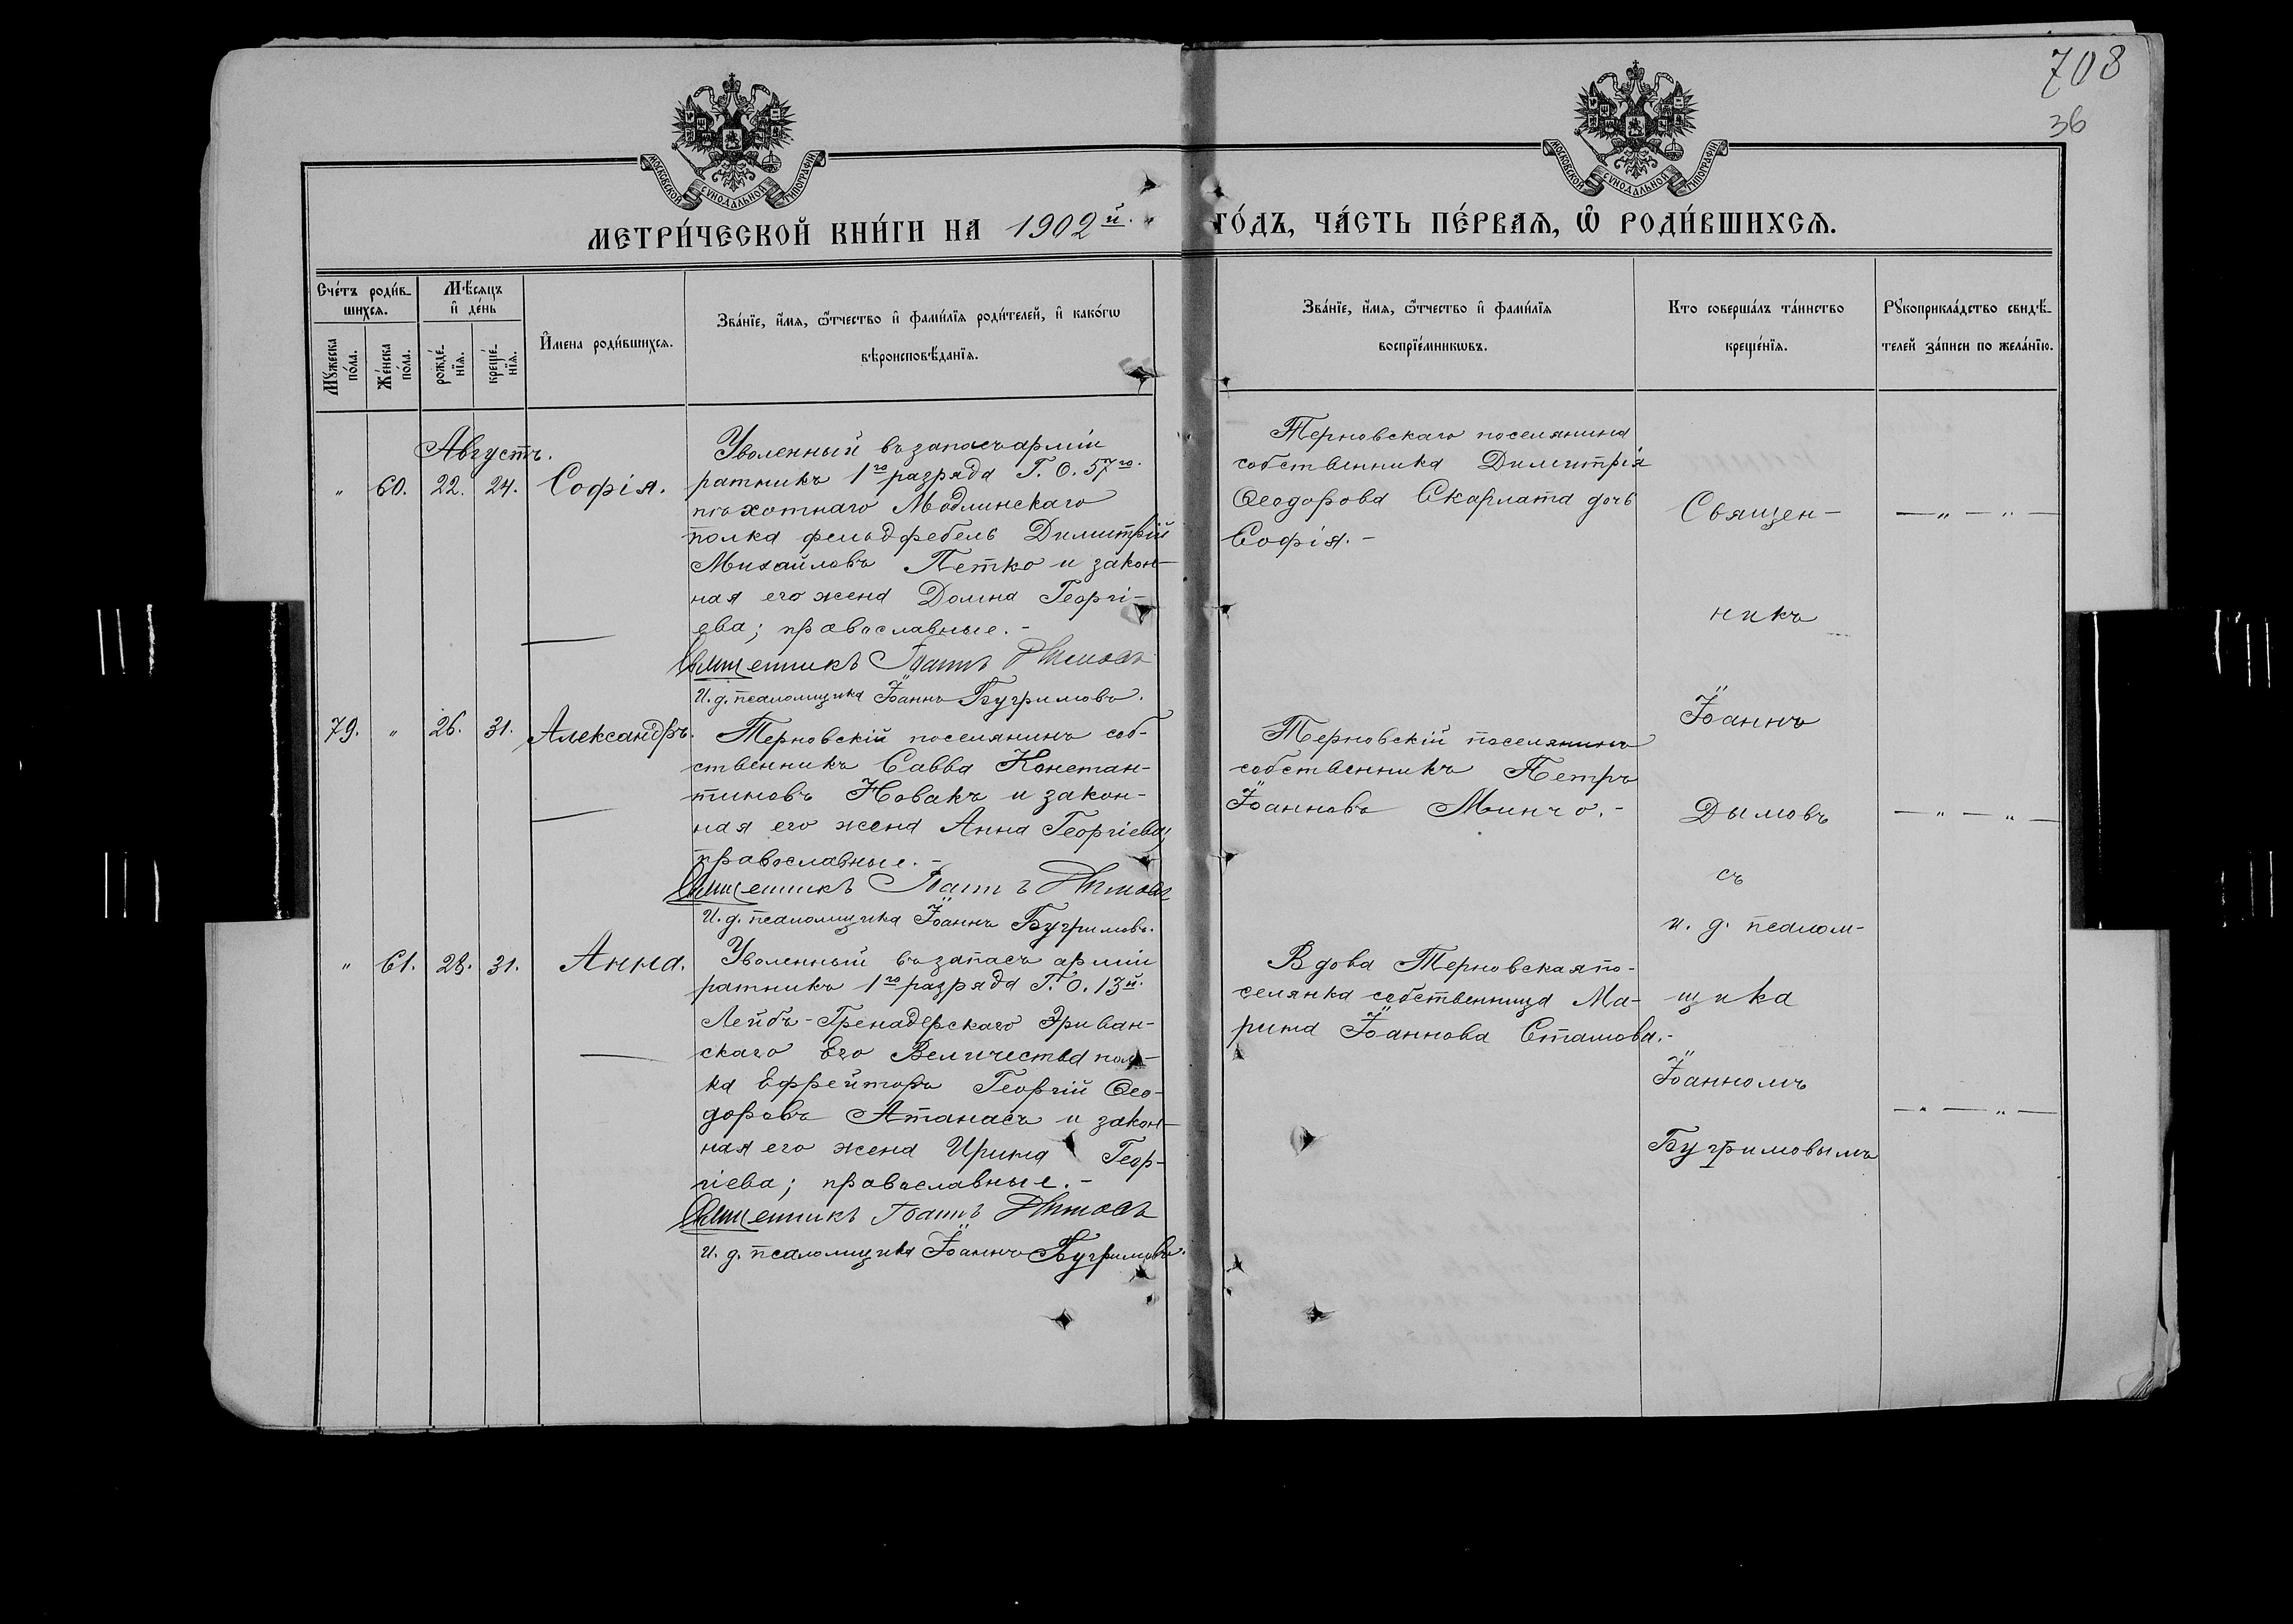 708
36
МОСКОВСКОЙ СѴНОДАЛЬНОЙ ТИПОГРАФІИ
МОСКОВСКОЙ СѴНОДАЛЬНОЙ ТИПОГРАФІИ
МЕТРИ́ЧЕСКОЙ КНИ́ГИ НА 1902й. ГО́ДЪ, ЧА́СТЬ ПЕ́РВАѦ, Ѽ РОДИ́ВШИХСѦ.
Сче́тъ роди́в-
шихсѧ.
Мꙋ́жеска по́ла.
Же́нска по́ла.
Мѣ́сѧцъ
и҆ де́нь
рожде́-
нїѧ.
креще́-
нїѧ.
И҆мена роди́вшихсѧ.
Зва́нїе, и҆́мѧ, ѻ҆́тчество и҆ фами́лїѧ роди́телей, и҆ како́гѡ
вѣроисповѣ́данїѧ.
Зва́нїе, и҆́мѧ, ѻ҆́тчество и҆ фами́лїѧ
воспрїе́мникѡвъ.
Кто соверша́лъ та́инство
креще́нїѧ.
Рꙋкоприкла́дство свидѣ́-
телей за́писи по жела́нїю.
Августъ.
" 60. 22. 24. Софія.
Уволенный въ запасъ арміи
ратникъ 1го разряда Г. О. 57го.
пѣхотнаго Модлинскаго
полка фельдфебель Димитрій
Михайловъ Петко и закон-
ная его жена Домна Георгі-
ева; православные.-
Священникъ Іоаннъ Дымовъ
И. д. псаломщика Іоаннъ Бугримовъ.
Терновскаго поселянина
собственника Димитрія
Ѳеодорова Скарлата дочь
Софія.-
79. " 26. 31. Александръ.
Терновскій поселянинъ соб-
ственникъ Савва Констан-
тиновъ Новакъ и закон-
ная его жена Анна Георгіева;
православные.-
Священникъ Іоаннъ Дымовъ
И. д. псаломщика Іоаннъ Бугримовъ.
Терновскій поселянинъ
собственникъ Петръ
Іоанновъ Минчо.-
" 61. 28. 31. Анна.
Уволенный въ запасъ арміи
ратникъ 1го разряда Г. О. 13й.
Лейбъ-Гренадерскаго Эриван-
скаго Его Величества пол-
ка Ефрейторъ Георгій Ѳео-
доровъ Атанасъ и закон-
ная его жена Ирина Геор-
гіева; православные.-
Священникъ Іоаннъ Дымовъ
И. д. псаломщика Іоаннъ Бугримовъ.
Вдова Терновская по-
селянка собственница Ма-
рина Іоаннова Стамова.-
Священ-
никъ
Іоаннъ
Дымовъ
съ
и. д. псалом-
щика
Іоанномъ
Бугримовымъ
— " — " —
— " — " —
— " — " —